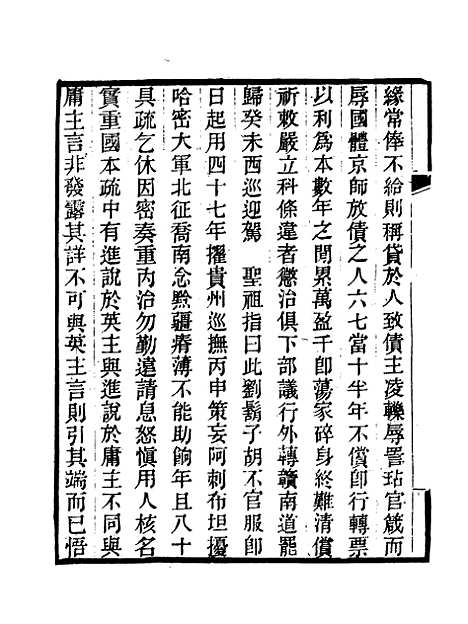 緣常俸不給則稱貸於人致債主凌轢辱詈玷官箴而
辱國體京師放債之人六七當十半年不償卽行轉票
以利爲本數年之間累萬盈千卽蕩家碎身終難清償
祈敕嚴立科條違者懲治俱下部議行外轉贛南道罷
歸癸未西巡迎駕　聖祖指曰此劉鬍子胡不官服卽
日起用四十七年擢貴州巡撫丙申策妄阿刺布坦擾
哈密大軍北征喬南念黔疆瘠薄不能助餉年且八十
具疏乞休因密奏重內治勿勤遠請息怒愼用人核名
實重國本疏中有進說於英主與進說於庸主不同與
庸主言非發露其詳不可與英主言則引其端而已悟